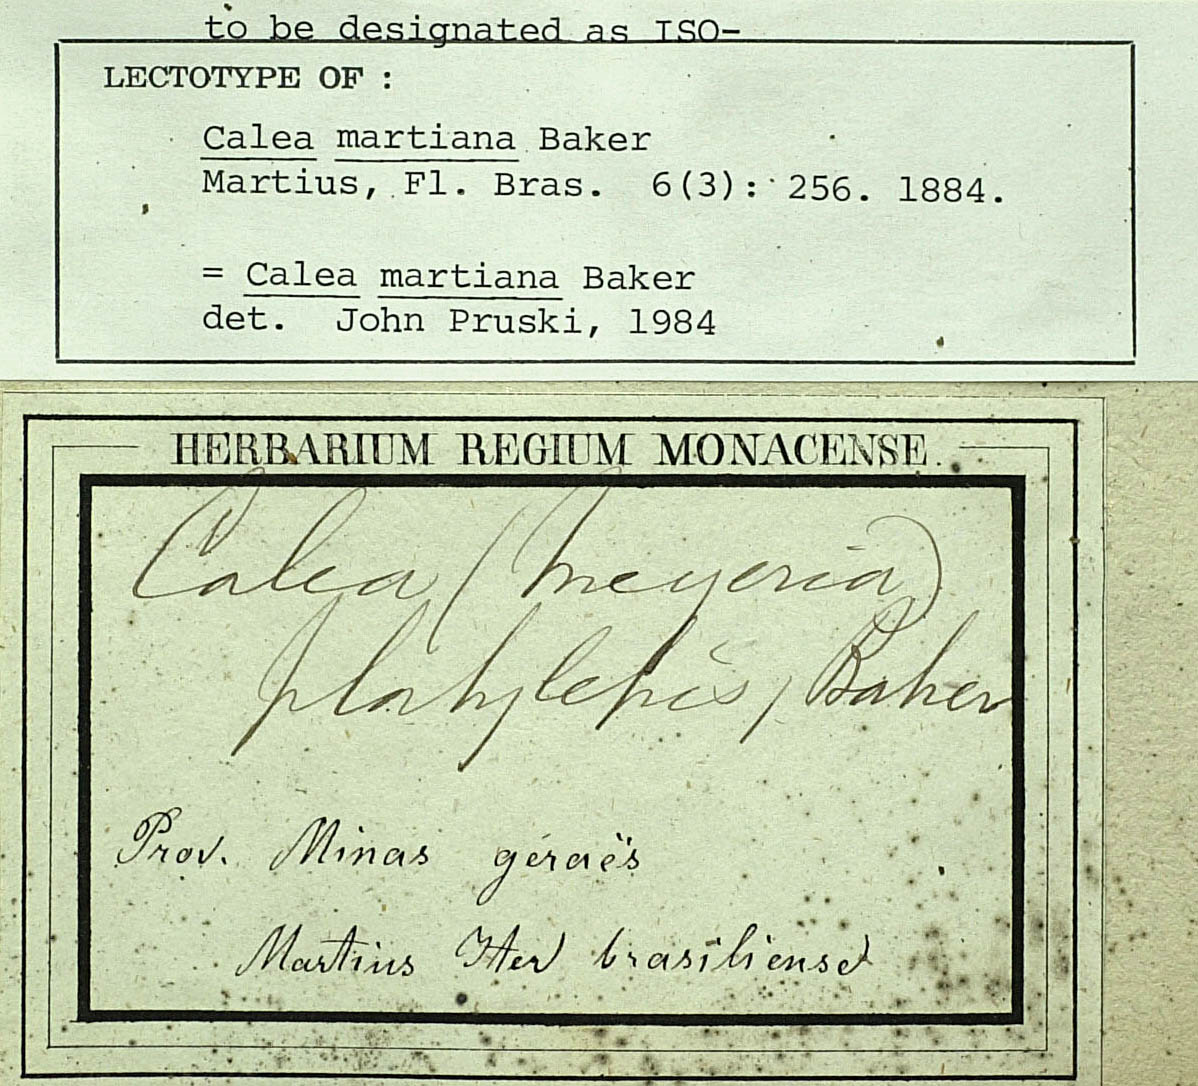 to be designated as ISO-
LECTOTYPE OF :
Calea martiana Baker
Martius, Fl. Bras. 6(3): 256. 1884.
= Calea martiana Baker
det. John Pruski, 1984
HERBARIUM REGIUM MONACENSE.
Calea (Meyeria)
platylepis, Baker
Prov. Minas géraës
Martius Iter brasiliense